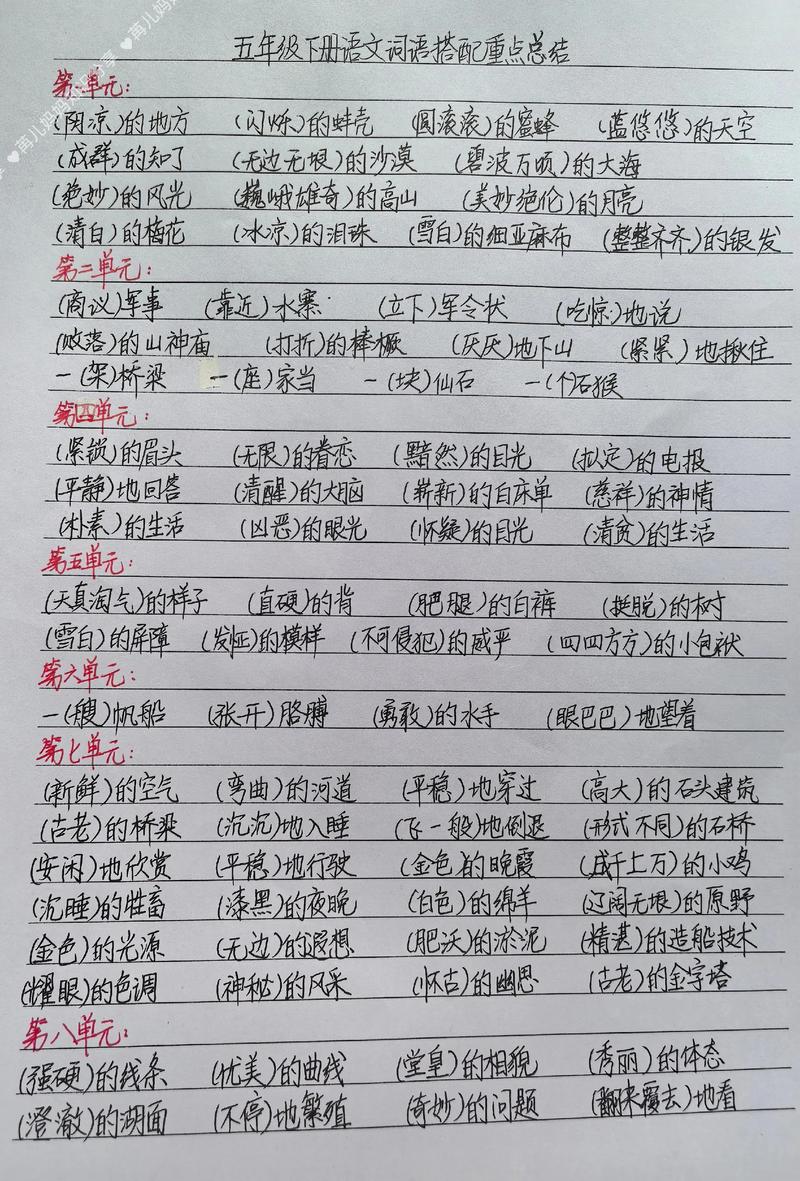 五年级下册语文词语搭配重点总结
第一单元:
(阴凉)的地方 (闪烁)的蚌壳 (圆滚滚)的蜜蜂 (蓝悠悠)的天空
(成群)的知了 (无边无垠)的沙漠 (碧波万顷)的大海
(绝妙)的风光 (巍峨雄奇)的高山 (美妙绝伦)的月亮
(清白)的梅花 (冰凉)的泪珠 (雪白)的细亚麻布 (整整齐齐)的银发
第二单元:
(商议)军事 (靠近)水寨 (立下)军令状 (吃惊)地说
(败落)的山神庙 (打折)的棒橛 (厌厌)地下山 (紧紧)地揪住
一(架)桥梁 一(座)家当 一(块)仙石 一(个)石猴
第四单元:
(紧锁)的眉头 (无限)的眷恋 (黯然)的目光 (拟定)的电报
(平静)地回答 (清醒)的大脑 (崭新)的白床单 (慈祥)的神情
(朴素)的生活 (凶恶)的眼光 (怀疑)的目光 (清贫)的生活
第五单元:
(天真淘气)的样子 (直硬)的背 (肥腿)的白裤 (挺脱)的树
(雪白)的屏障 (发怔)的模样 (不可侵犯)的威严 (四四方方)的小包袱
第六单元:
一(艘)帆船 (张开)胳膊 (勇敢)的水手 (眼巴巴)地望着
第七单元:
(新鲜)的空气 (弯曲)的河道 (平稳)地穿过 (高大)的石头建筑
(古老)的桥梁 (沉沉)地入睡 (飞一般)地倒退 (形式不同)的石桥
(安闲)地欣赏 (平稳)地行驶 (金色)的晚霞 (成千上万)的小鸡
(沉睡)的牲畜 (漆黑)的夜晚 (白色)的绵羊 (辽阔无垠)的原野
(金色)的光源 (无边)的遐想 (肥沃)的淤泥 (精湛)的造船技术
(耀眼)的色调 (神秘)的风采 (怀古)的幽思 (古老)的金字塔
第八单元:
(强硬)的线条 (优美)的曲线 (堂皇)的相貌 (秀丽)的体态
(澄澈)的湖面 (不停)地繁殖 (奇妙)的问题 (翻来覆去)地看